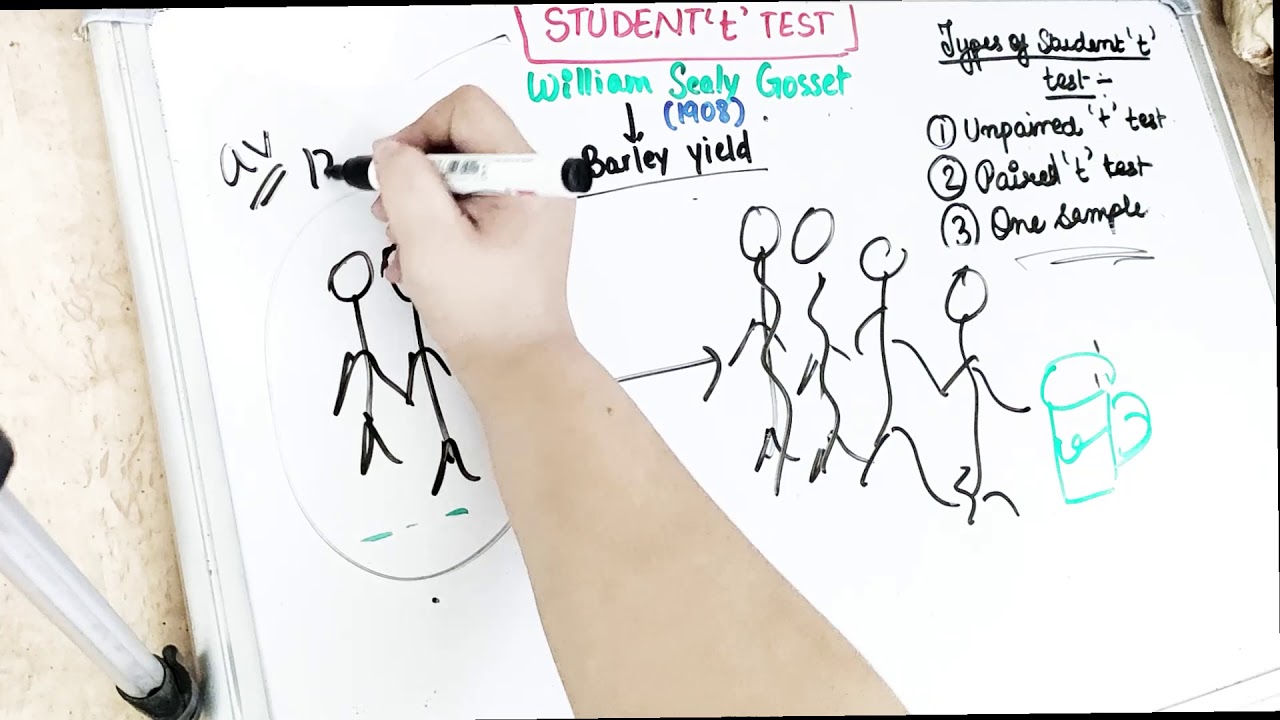 STUDENT 't' TEST
William Sealy Gosset
(1908)
Barley yield
Types of Student 't'
test :-
① Unpaired 't' test
② Paired 't' test
③ One sample
av